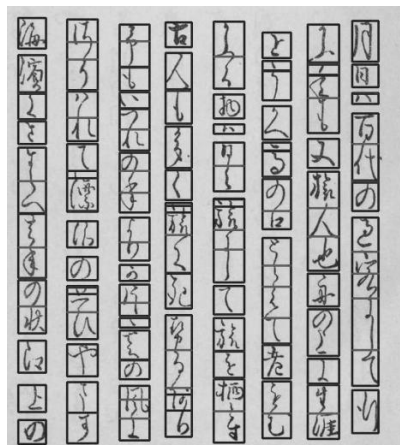 月日ハ百代の過客にして行
かふ年も又旅人也舟のうへに生涯
をうかへ馬の口とらえて老をむ
かふる物ハ日々旅にして旅を栖とす
古人も多く旅に死せるあり
予もいつれの年よりか片雲の風に
さそハれて漂泊の思ひやます
海濱にさすらへ去年の秋江上の